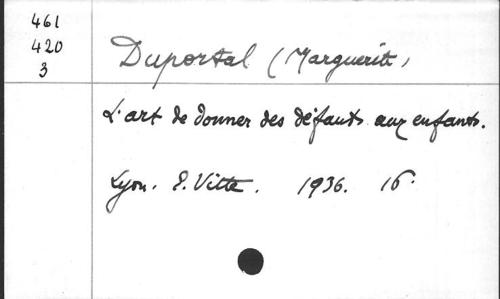 461
420
3
Duportal (Marguerite)
L'art de donner des défauts aux enfants.
Lyon. E. Vitte. 1936. 16°